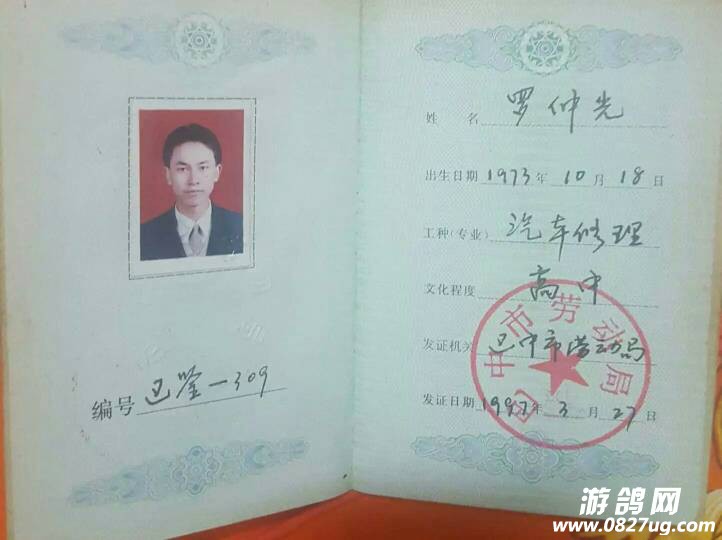 编号 巴鉴一309
姓 名 罗仲先
出生日期 1973年 10月 18日
工种(专业) 汽车修理
文化程度 高中
发证机关 巴中市劳动局
发证日期 1997年 3月 27日
巴中市劳动局
游鸽网
www.0827ug.com